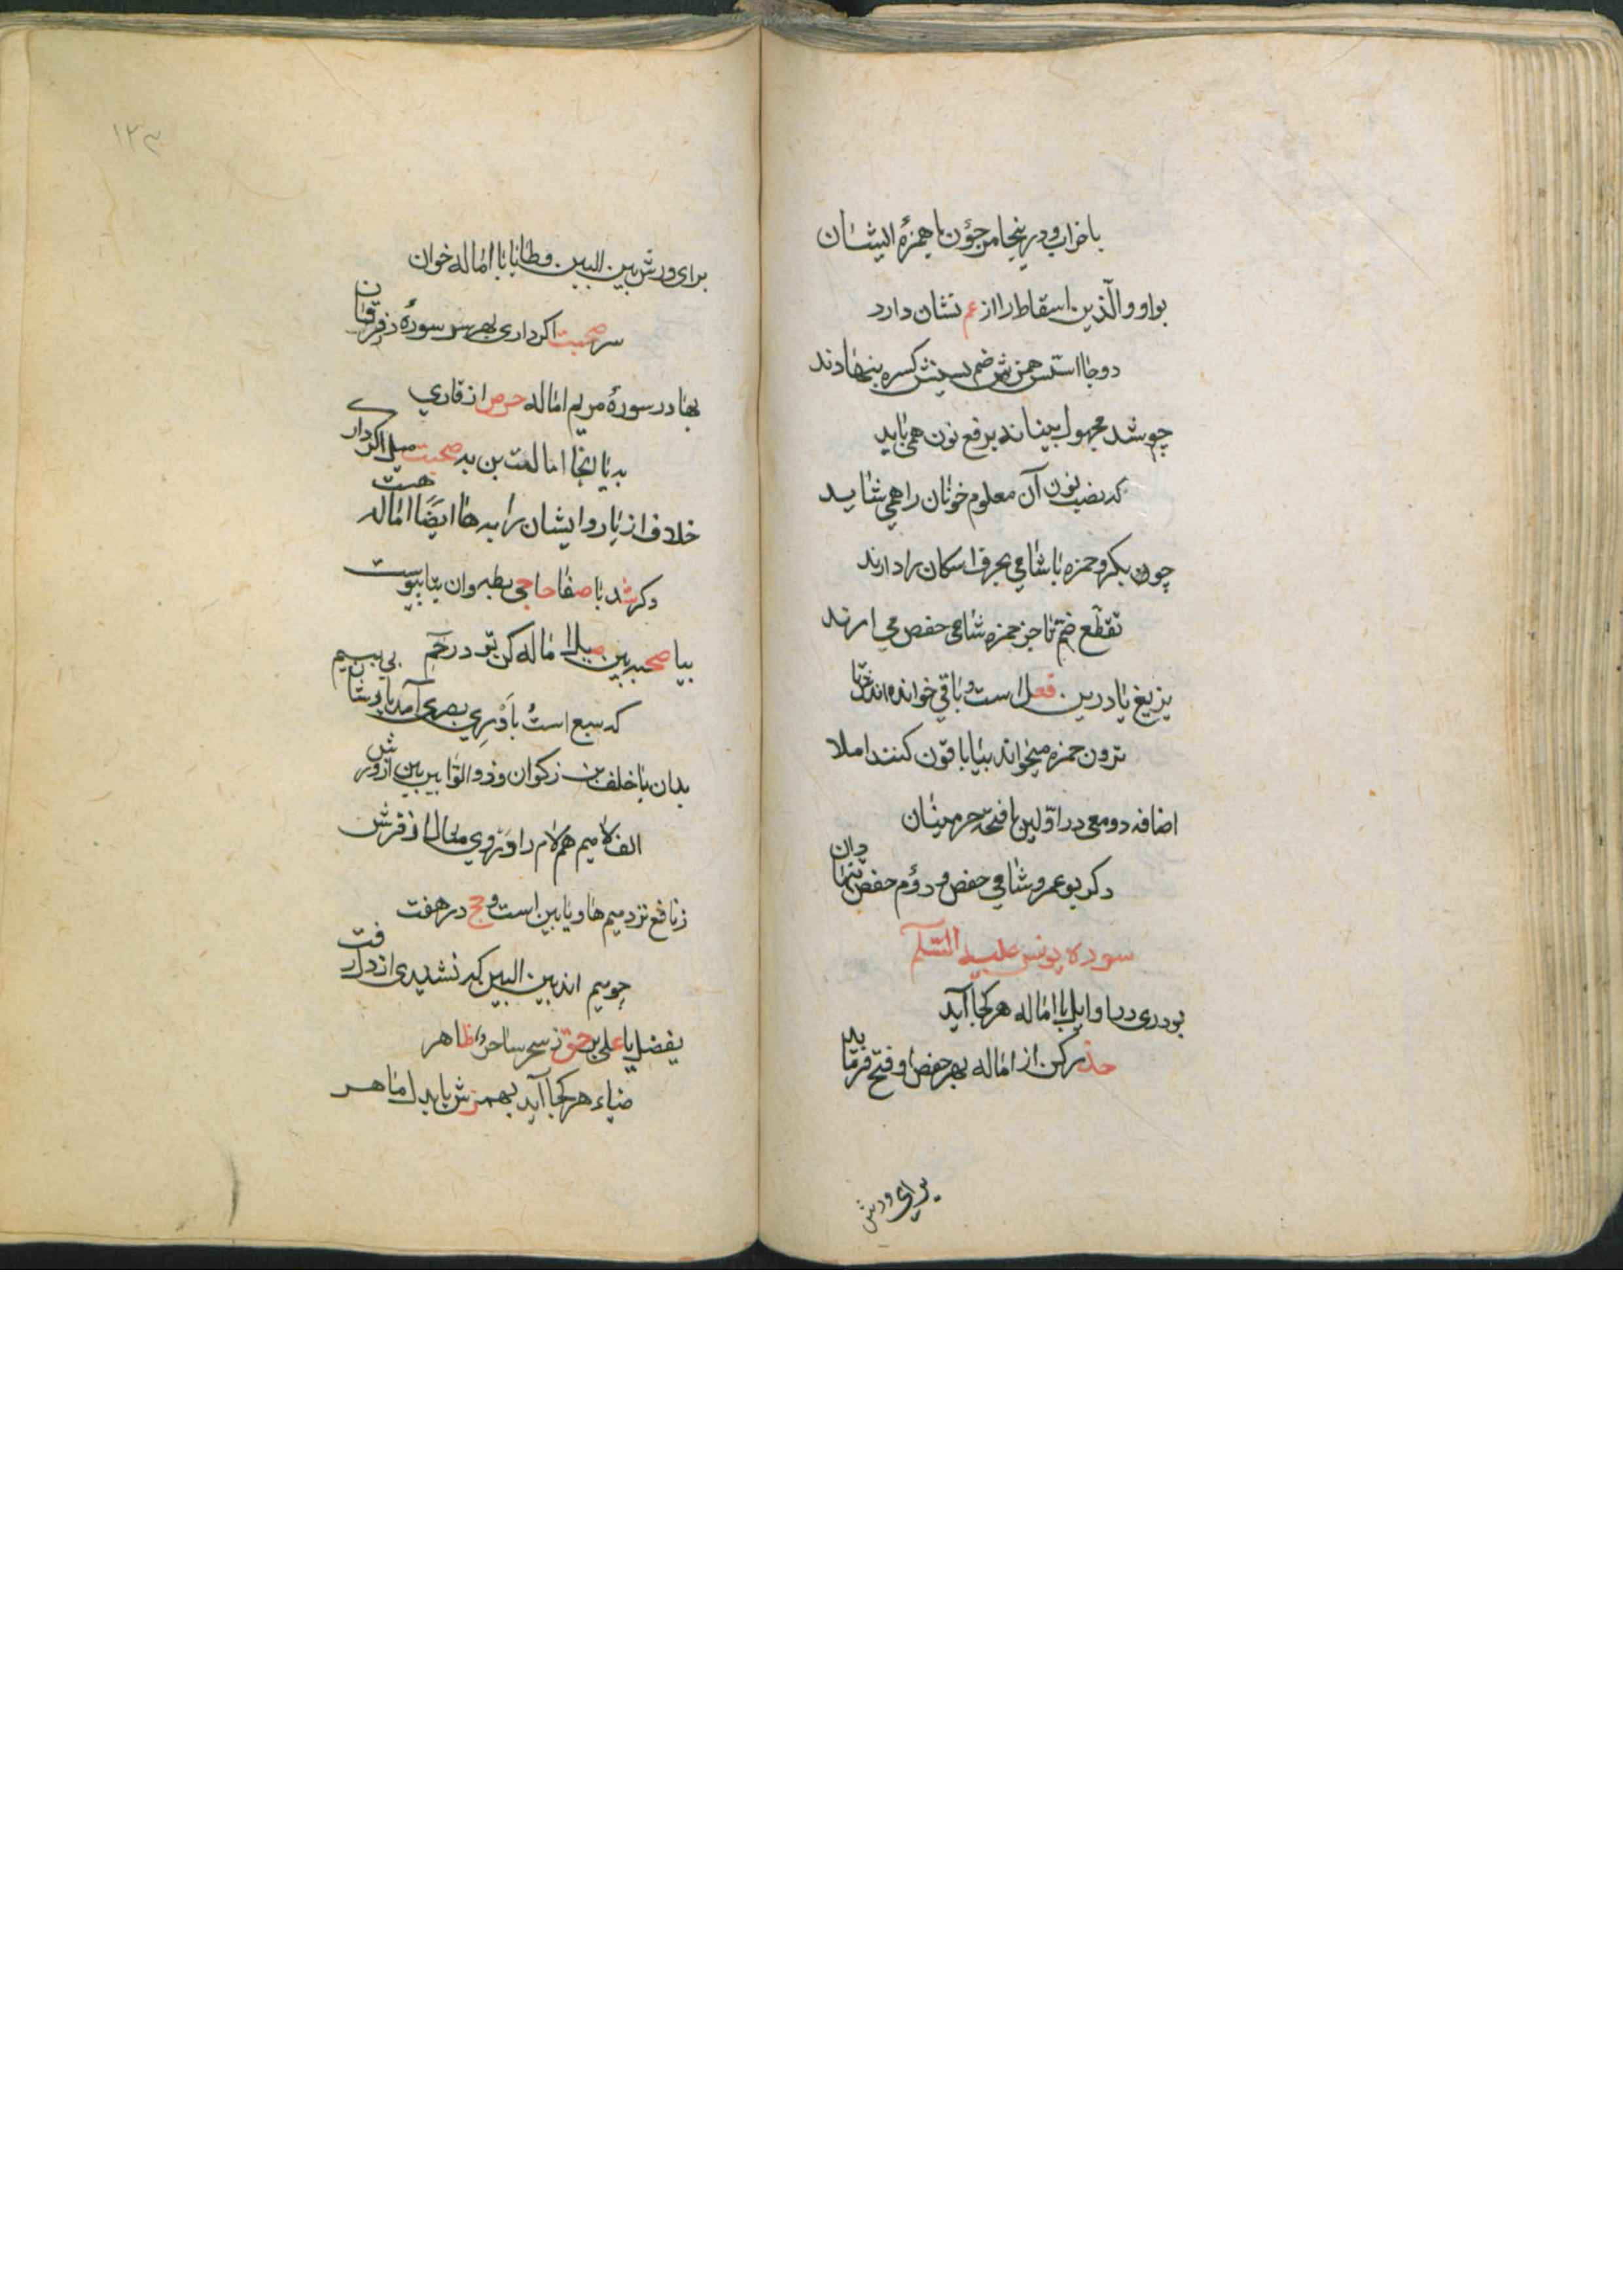 باخراب و درینجا مرجؤن با همزهٔ ایشان
بواو والّذین اسقاط را از عم نشان دارد
دوجا اسّس همزش ضم سینش کسره بنهادند
چو شد مجهول بنیانه برفع نون همی باید
که نصب نون آن معلوم خوانان را همی شاید
چون بکر و حمزه با شامی بجرف اسکان را دارند
تقطّع ضمّ تا جز حمزه شامی حفص می ارند
یزیغ یا درین فعل است و باقی خوانده اند
ترون حمزه میخواند بیا باقون کنند املا
اضافه دو معی در اوّلین با فتحه حرمینان
دکر بوعمرو شامی حفص و دؤم حفص تنها دان
سوره یونس علیه السّلم
بود ری در اوایل با اماله هر کجا آید
حذر کن از اماله بهر حفص او فتح فرماید
برای ورش
۱۲۳
برای ورش بین البین و طا با یا اماله خوان
سر صحبت اکر داری بهر سر سورهٔ ز فرقان
بها در سورهٔ مریم اماله حرص از قاری
به یا اینجا امالت بن به صحبت میل اکر داری
خلاف از یا روایشان را به ها ایضًا اماله هست
دکر شد با صفا حاجی بطه وان بیا پیوست
بیا صحبه ببین میلا اماله کن تو در حم بی بیم
که سبع است و بادری بصری آمد یا
بدان با خلف بن زکوان و ذو الرّا بین بین از ورش
الف لام میم هم لام را و مثال از فرش
ز نافع نزد میم ها و یا بین است و حج در هفت
جو میم اند بین البین که نشنیدی از
یفصل یا علی بر حق ز سحر ساحر و ظاهر
ضیاء هر کجا آید بهمزش یا بدل ماهر